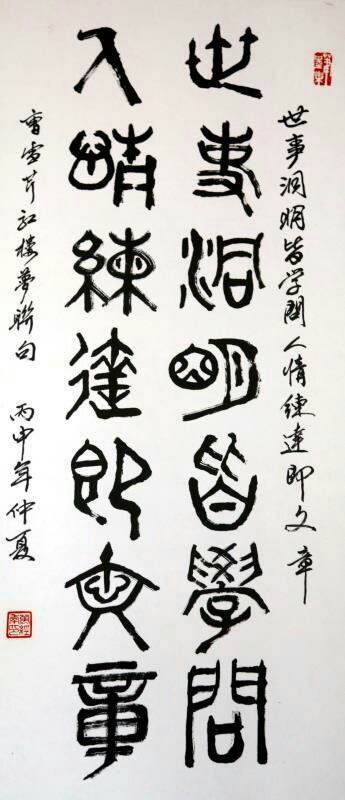 世事洞明皆学問人情練達即文章
世事洞明皆學問
人情練達即文章
曹雪芹紅楼夢聯句 丙申年仲夏